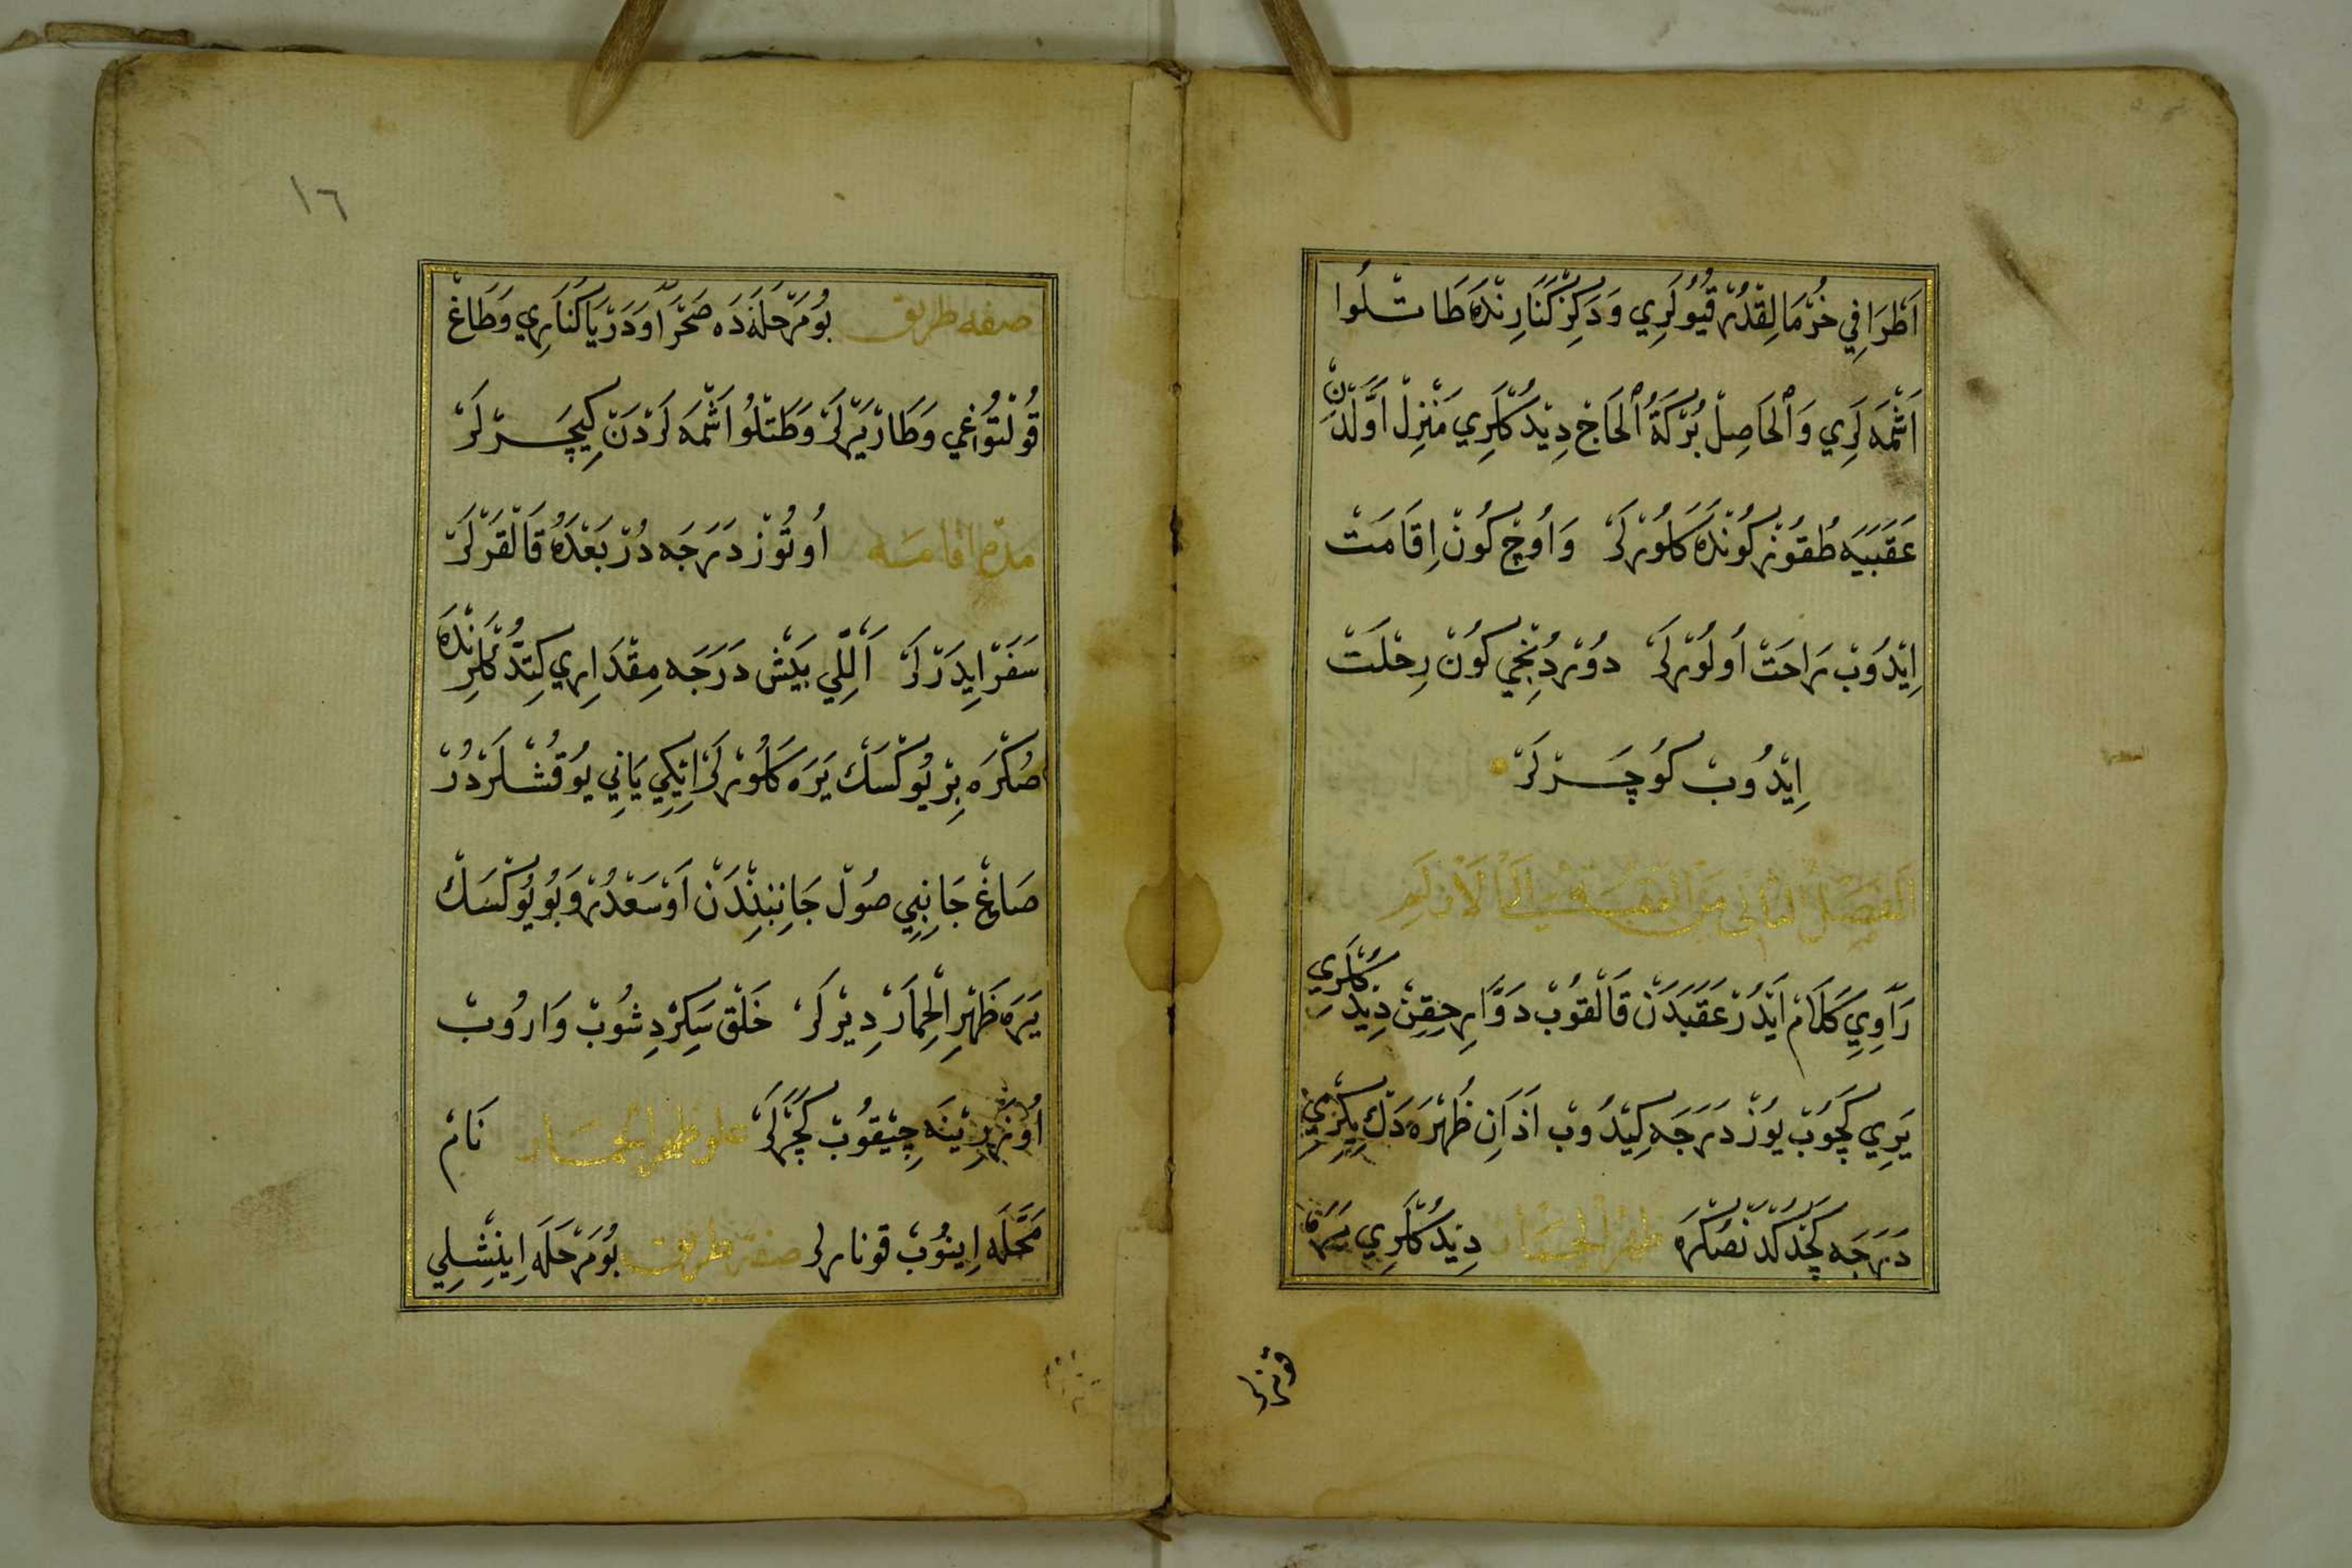 اَطْرَافِي خُرْمَالِقْدُرْ قُيُولَرِي وَدَكِزْ كَنَارِنْدَهْ طَاتْلُوا
اَشْمَه لَرِي وَٱلْحَاصِلْ بُرْكَةُ ٱلْحَاجْ دِيْدُكْلَرِي مَنْزِلْ اَوَّلْدَنْ
عَقَبَيَه طُقُوزْ كُونْدَهْ كَلُورْلَرْ وَاُوچْ كُونْ اِقَامَتْ
اِيْدُوبْ رَاحَتْ اُولُورْلَرْ دُورْدِنْجِي كُونْ رِحْلَتْ
اِيْدُوبْ كُوچَرْلَرْ
اَلْفَصْلُ الثَّانِي مِنَ الْعَقَبَةِ اِلَى الْاَزْلَمِ
رَاوِيِ كَلَامْ اَيْدُرْ عَقَبَدَنْ قَالْقُوبْ دَوَّارِ حِقِنْ دِيْدُكْلَرِي
يَرِي كَچُوبْ يُوزْ دَرَجَه كِيْدُوبْ اَذَانِ ظُهْرَهدَكْ يِكِرْمِي
دَرَجَه كَچْدُكْدَنْصُكْرَه ظَهْرُ الْحِمَارْ دِيْدُكْلَرِي يَرَه
قُونَرْلَرْ
١٦
صفه طريق بُو مَرْحَلَهدَه صَحْرَاوْ وَدَرْيَا كَنَارِي وَطَاغْ
قُولْتُوغِي وَطَارْيَرْلَرْ وَطَتْلُو اَشْمَه لَرْدَنْ كِيچَرْلَرْ
مدّة اقامسه اُوتُوزْ دَرَجَه دُرْ بَعْدَهُ قَالْقَرْلَرْ
سَفَرْ اِيدَرْلَرْ اَللِّي بَيْشْ دَرَجَه مِقْدَارِي كِتْدُكْلَرِنْدَهْ
صُكْرَه بِرْ يُوكْسَكْ يَرَه كَلُورْلَرْ اِيْكِي يَانِي يُوقُشْلَرْدُرْ
صَاغْ جَانِبِي صُولْ جَانِبِنْدَنْ اَوْسَعْدُرْ وَبُو يُوكْسَكْ
يَرَه ظَهْرِ الْحِمَارْ دِيْرْلَرْ خَلْق سَكِرْدِشُوبْ وَارُوبْ
اُوزَرِيْنَه چِيْقُوبْ كَچَرْلَرْ علو ظهر الحمار نَامْ
مَحَلَّه اِينُوبْ قونارلر صفة طريق بُو مَرْحَلَه اِينِشْلِي